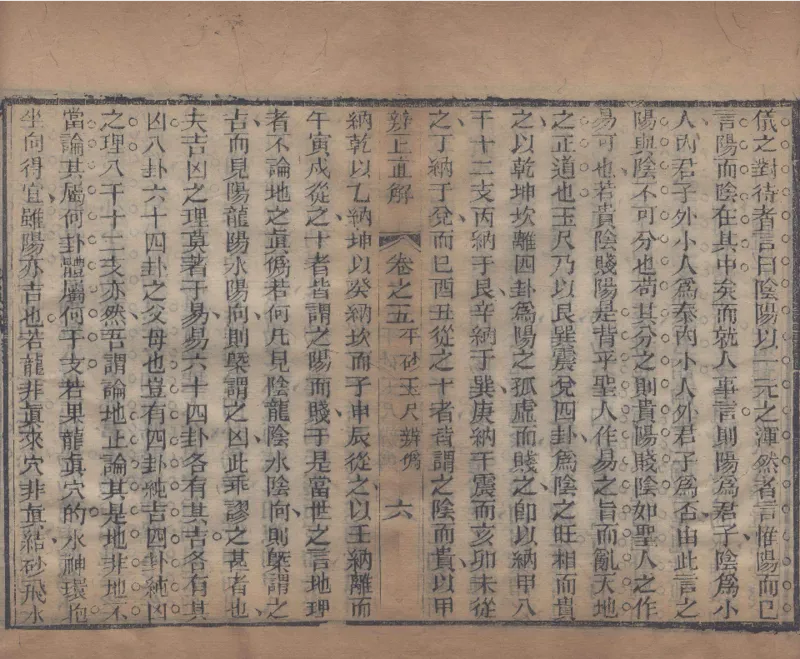 儀之對待者言曰陰陽以一元之渾然者言惟陽而已
言陽而陰在其中矣而就人事言則陽為君子陰為小
人內君子外小人為泰內小人外君子為否由此言之
陽與陰不可分也苟其分之則貴陽賤陰如聖人之作
易可也若貴陰賤陽是背乎聖人作易之旨而亂天地
之正道也玉尺乃以艮巽震兌四卦為陰之旺相而貴
之以乾坤坎離四卦為陽之孤虛而賤之卽以納甲八
干十二支丙納于艮辛納于巽庚納于震而亥卯未從
之丁納于兌而巳酉丑從之十者皆謂之陰而貴以甲
辨正直解 卷之五 平砂玉尺辨僞 六
納乾以乙納坤以癸納坎而子申辰從之以壬納離而
午寅戍從之十者皆謂之陽而賤于是當世之言地理
者不論地之眞僞若何凡見陰龍陰水陰向則槩謂之
吉而見陽龍陽水陽向則槩謂之凶此乖謬之甚者也
夫吉凶之理莫著于易易六十四卦各有其吉各有其
凶八卦六十四卦之父母也豈有四卦純吉四卦純凶
之理八干十二支亦然吾謂論地止論其是地非地不
當論其屬何卦體屬何干支若果龍眞穴的水神環抱
坐向得宜雖陽亦吉也若龍非眞來穴非眞結砂飛水